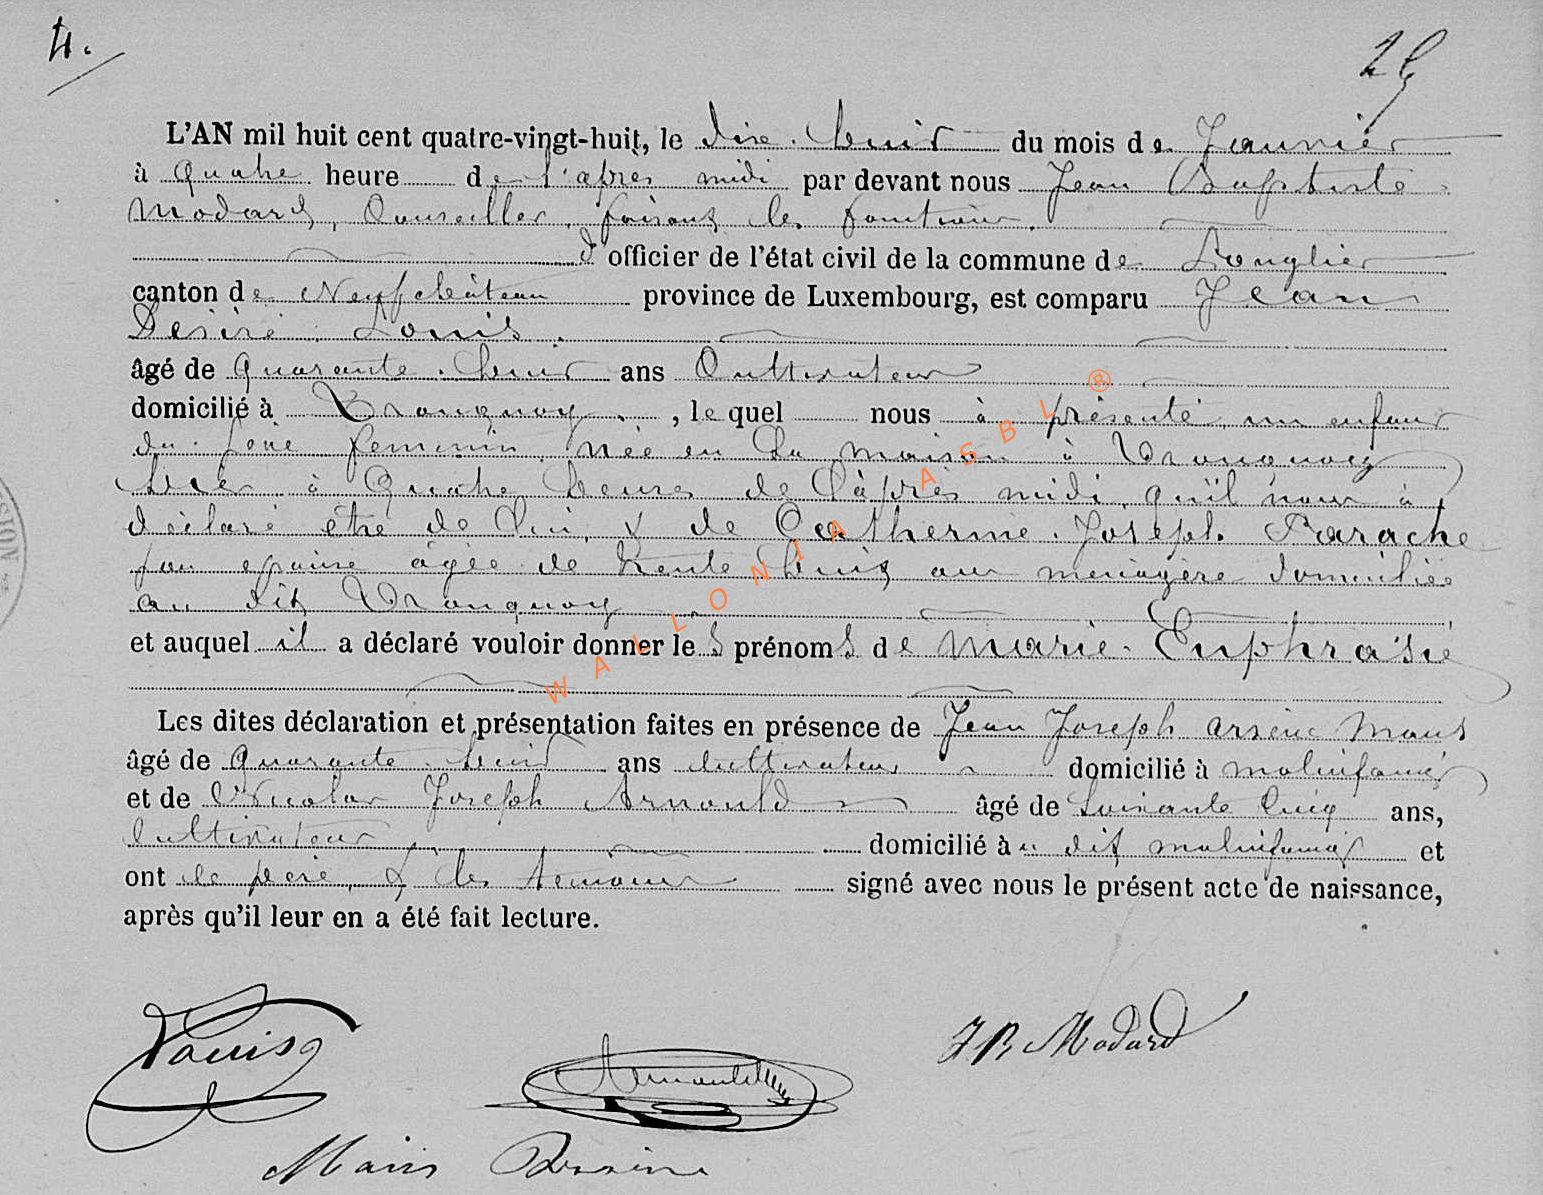 4.
L'AN mil huit cent quatre-vingt-huit, le dixe-huit du mois de Janvier
à quatre heure de l'après midi par devant nous Jean Baptiste
Modard, Conseiller, faisant les fonctions
d'officier de l'état civil de la commune de Longlier
canton de Neufchâteau province de Luxembourg, est comparu Jean
Désiré Louis
âgé de quarante-huit ans Cultivateur
domicilié à Tronquoy, lequel nous à présenté un enfant
du sexe feminin née en Sa maison à Tronquoy
hier à quatre heures de l'après midi qu'il nous à
déclaré être de lui, & de Catherine Joseph Parache
son epouse âgée de trente huit ans menagère domiciliée
au dit Tronquoy
et auquel il a déclaré vouloir donner les prénoms de Marie-Euphrasie
Les dites déclaration et présentation faites en présence de Jean Joseph Arsène Maus
âgé de quarante-huit ans cultivateur domicilié à molinfaing
et de Nicolas Joseph Arnould âgé de soixante cinq ans,
Cultivateur domicilié àu dit molinfaing et
ont le père & les temoins signé avec nous le présent acte de naissance,
après qu'il leur en a été fait lecture.
Louis
J B Modard
Arnould
WALLONIA ASBL ®
SION